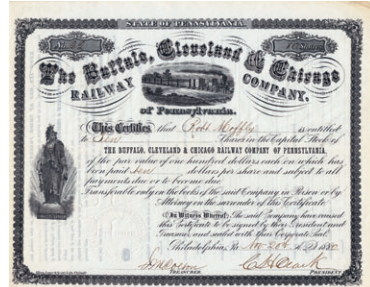 STATE OF PENNSYLVANIA
The Buffalo, Cleveland & Chicago
RAILWAY COMPANY,
of Pennsylvania.
This Certifies that Robt Moffly is entitled
to Ten Shares in the Capital Stock of
THE BUFFALO, CLEVELAND & CHICAGO RAILWAY COMPANY OF PENNSYLVANIA,
of the par value of one hundred dollars each on which has
been paid ten dollars per share and subject to all
payments due or to become due
Transferable only on the books of the said Company in Person or by
Attorney on the surrender of this Certificate.
In Witness Whereof, The said Company have caused
this Certificate to be signed by their President and
Treasurer, and sealed with their Corporate Seal.
Philadelphia, Pa. Nov 20th
TREASURER
C H Clark
PRESIDENT